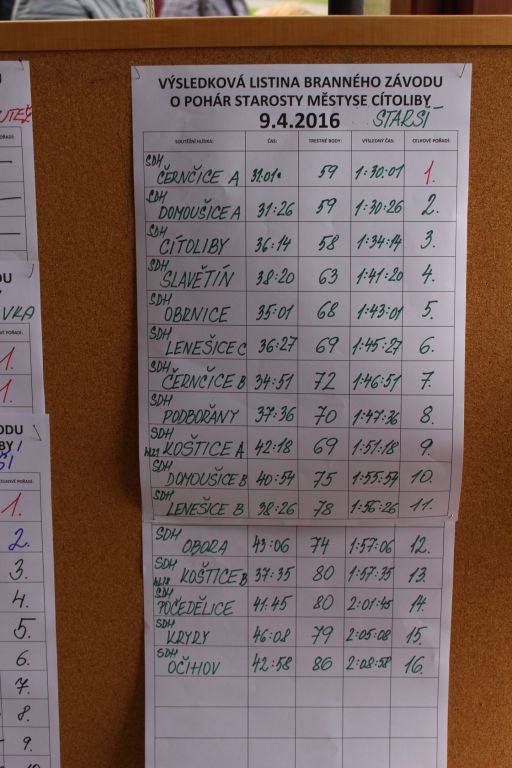 VÝSLEDKOVÁ LISTINA BRANNÉHO ZÁVODU
O POHÁR STAROSTY MĚSTYSE CÍTOLIBY
9.4.2016 STARŠÍ
SOUTĚŽNÍ HLÍDKA: ČAS: TRESTNÉ BODY: VÝSLEDNÝ ČAS: CELKOVÉ POŘADÍ:
SDH ČERNČICE A 31:01 59 1:30:01 1.
SDH DOMOUŠICE A 31:26 59 1:30:26 2.
SDH CÍTOLIBY 36:14 58 1:34:14 3.
SDH SLAVĚTÍN 38:20 63 1:41:20 4.
SDH OBRNICE 35:01 68 1:43:01 5.
SDH LENEŠICE C 36:27 69 1:45:27 6.
SDH ČERNČICE B 34:51 72 1:46:51 7.
SDH PODBOŘANY 37:36 70 1:47:36 8.
SDH KOŠTICE A 42:18 69 1:51:18 9.
SDH DOMOUŠICE B 40:54 75 1:55:54 10.
SDH LENEŠICE B 38:26 78 1:56:26 11.
SDH OBORA 43:06 74 1:57:06 12.
SDH KOŠTICE B 37:35 80 1:57:35 13.
SDH POČEDĚLICE 41:45 80 2:01:45 14.
SDH KRYRY 46:08 79 2:05:08 15.
SDH OČIHOV 42:58 86 2:08:58 16.
1.
1.
1.
2.
3.
4.
5.
6.
7.
8.
9.